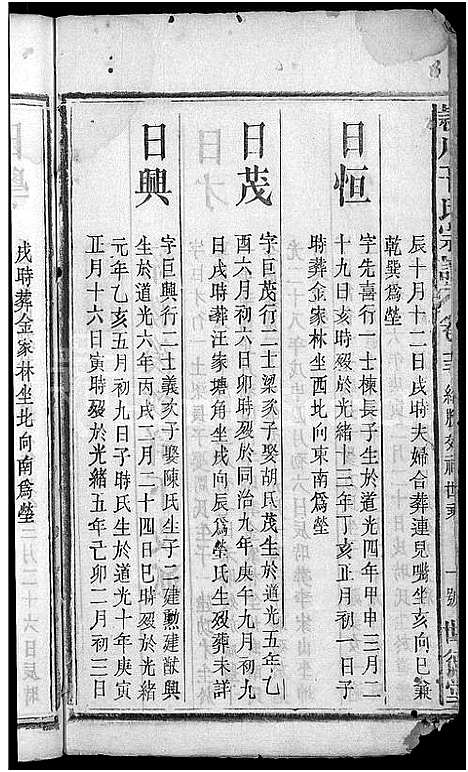 辰十月十二日戌時夫婦合葬連兒嘴坐亥向巳兼
乾巽爲塋
日恒
字先喜行一士棟長子生於道光四年甲申三月二
十九日亥時殁於光緒十三年丁亥正月初一日子
時葬金家林坐西北向東南爲塋
日茂
字巨茂行二士梁次子娶胡氏茂生於道光五年乙
酉六月初六日卯時殁於同治九年庚午九月初九
日戌時葬汪家塘角坐戌向辰爲塋氏生殁葬未詳
日興
字巨興行二士義次子娶陳氏生子二建勲建猷興
生於道光六年丙戌二月二十四日巳時殁於光緒
元年乙亥五月初九日子時氏生於道光十年庚寅
正月十六日寅時殁於光緒五年己卯二月初三日
戌時葬金家林坐北向南爲塋